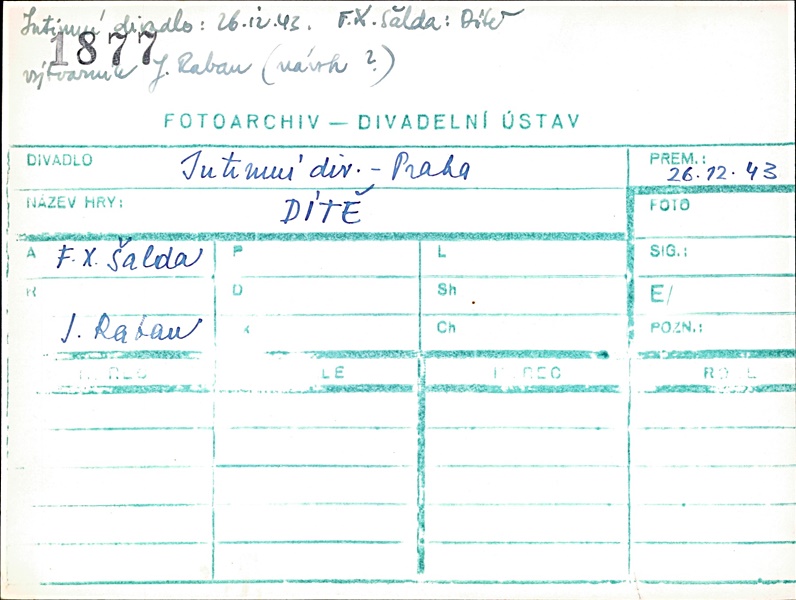 Intimní divadlo: 26.12.43. F.X. Šalda: Dítě
1877
výtvarník J. Raban (návrh ?)
FOTOARCHIV — DIVADELNÍ ÚSTAV
DIVADLO Intimní div. - Praha PREM.: 26.12.43
NÁZEV HRY: DÍTĚ FOTO
A F.X. Šalda P L SIG.:
R D Sh E/
J. Raban K Ch POZN.: